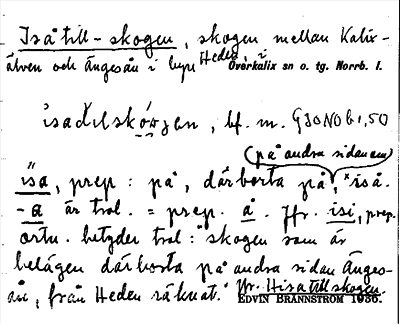 Isåtill-skogen, skogen mellan Kalix-
älven och Ängesån i byn Heden, i Överkalix sn o. tg. Norrb. l.
bf. m. GJONOB 1,50
(på andra sidan om)
isa, prep: på, därborta på, *iså.
-a är trol. = prep. å. Jfr. isi, prep.
ortn. betyder trol: skogen som är
belägen därborta på andra sidan Änges-
ån, från Heden räknat. Jfr. Hisåtillskogen.
EDVIN BRÄNNSTRÖM 1936.